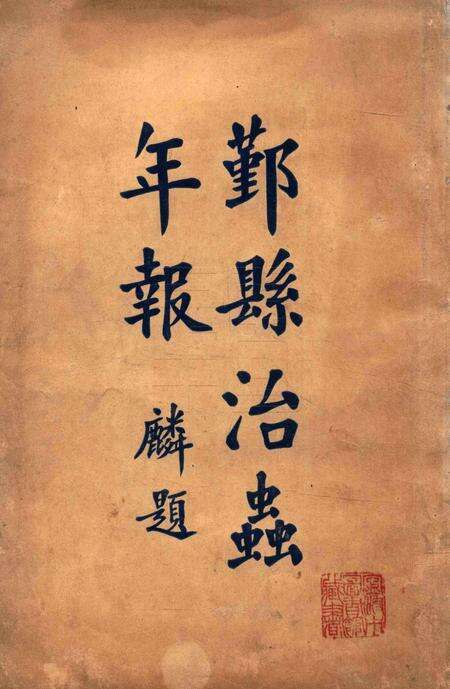 鄞縣治蟲
年報
麟題